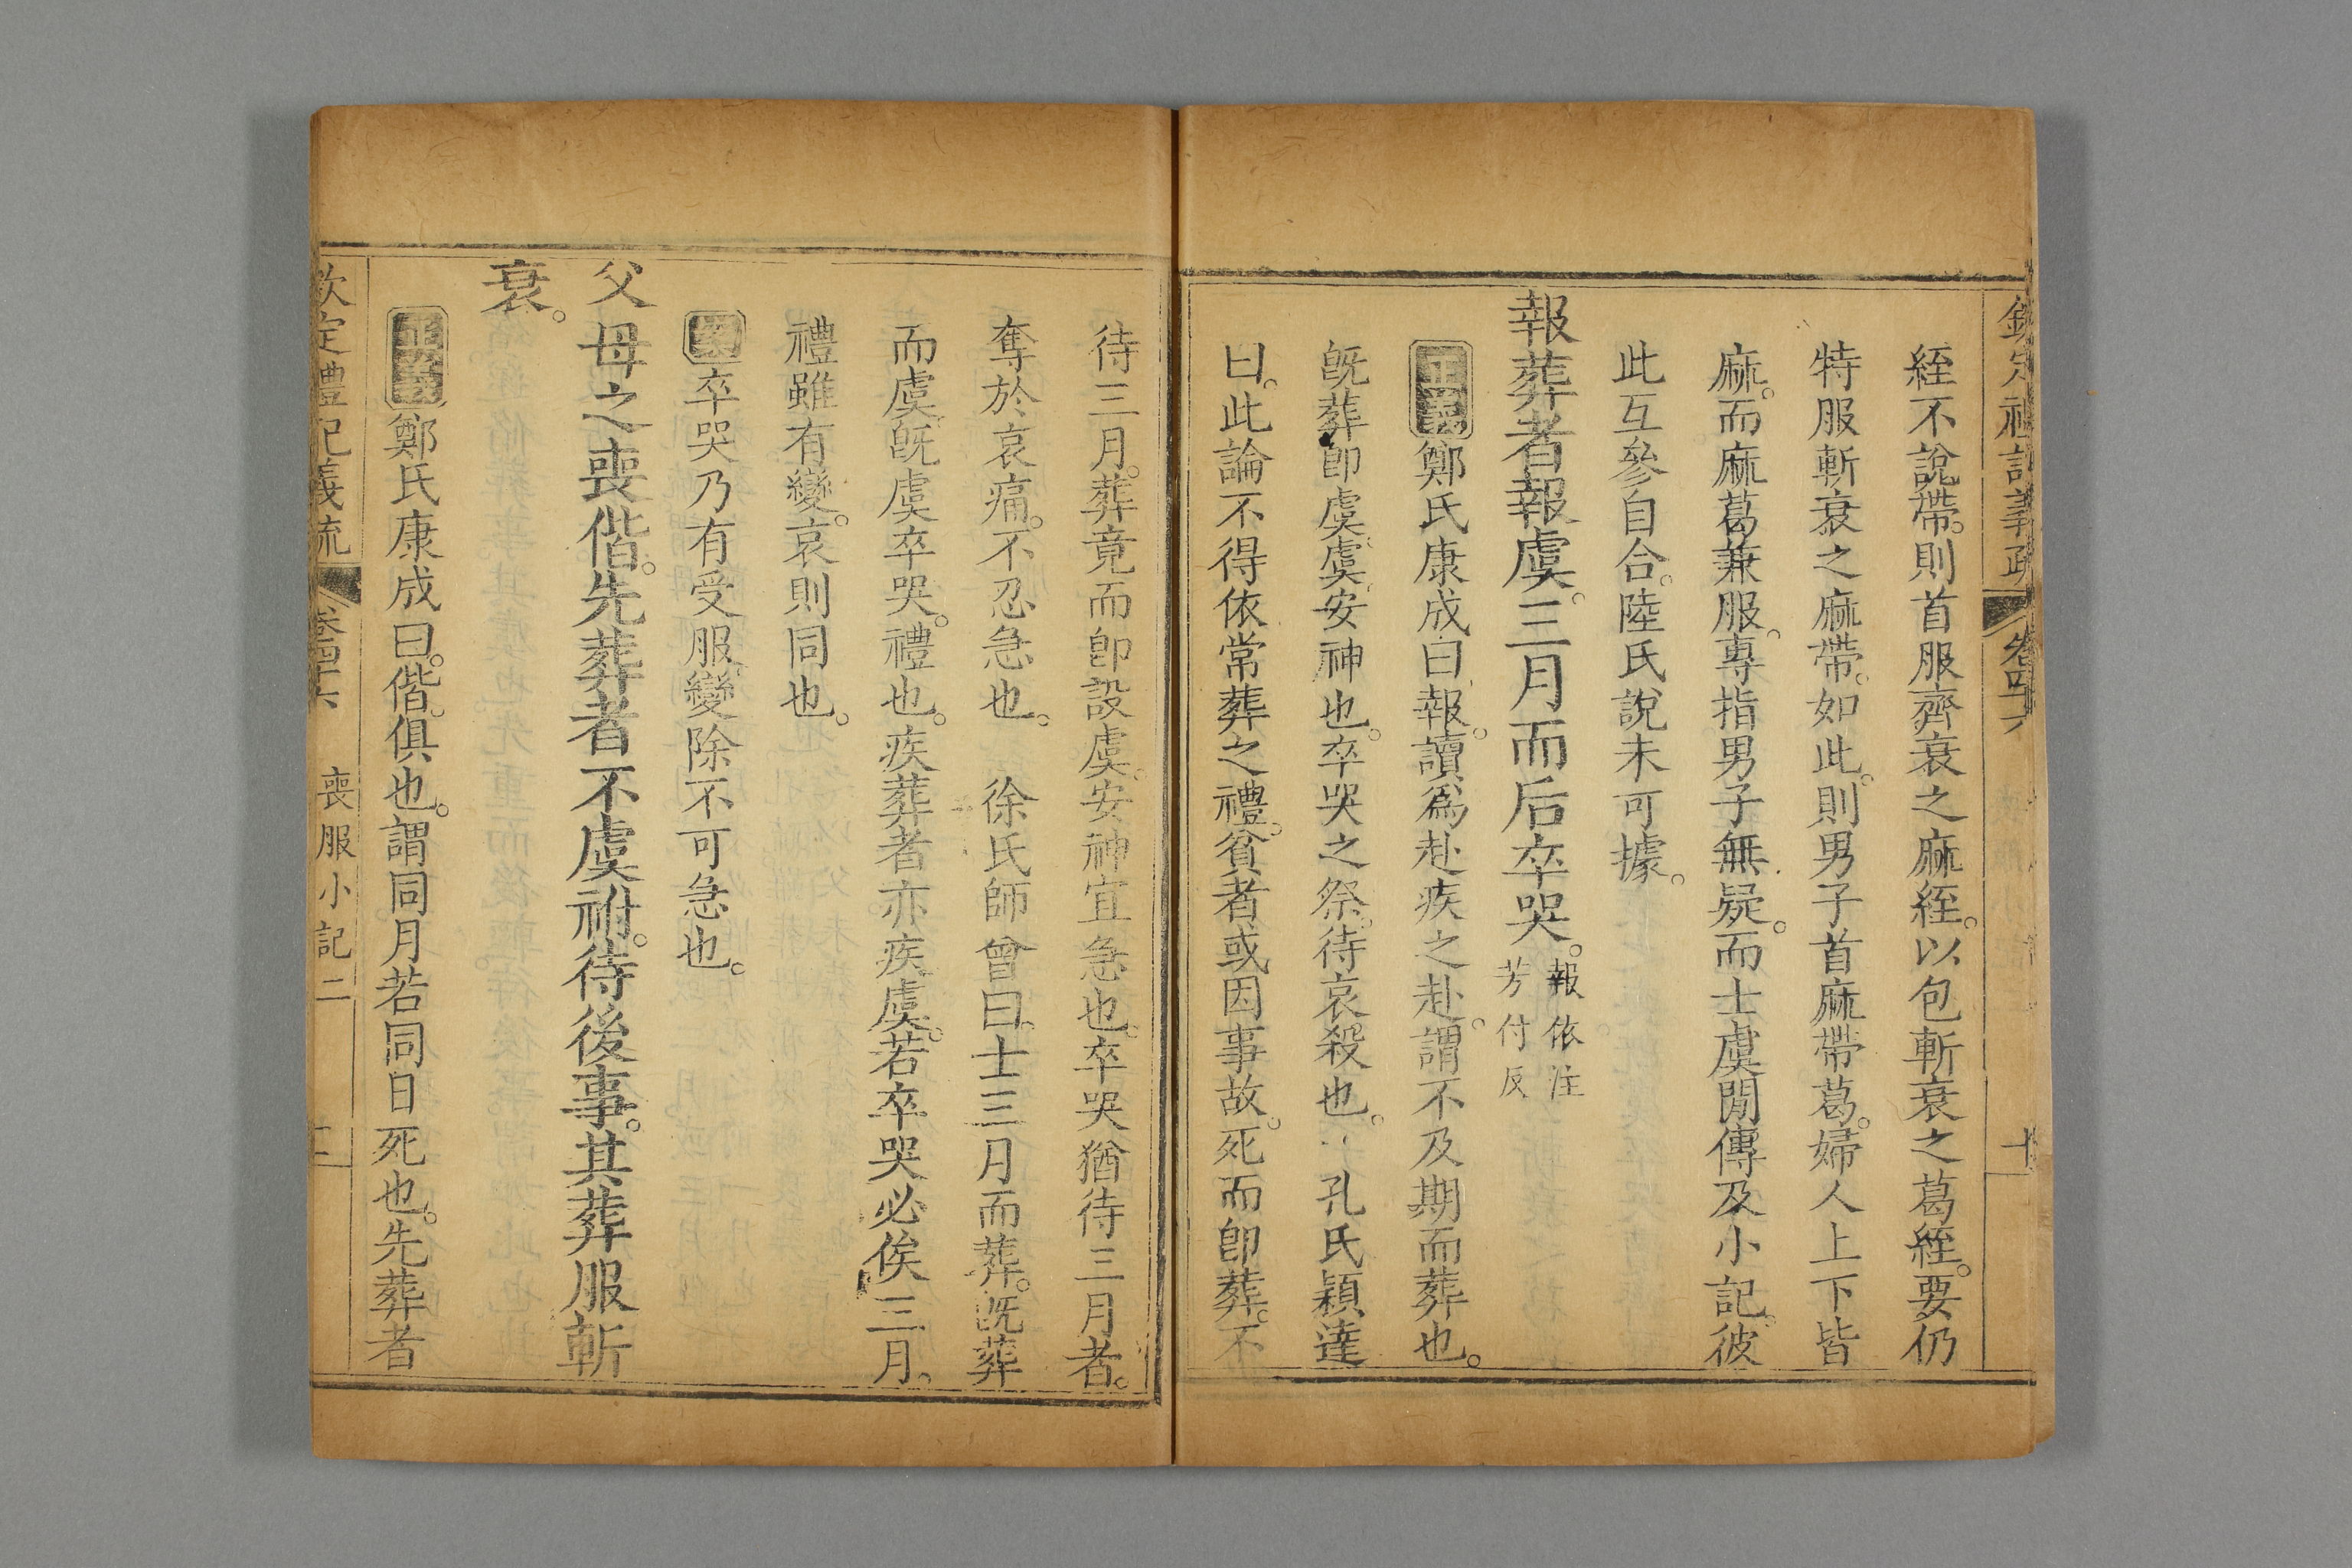 欽定禮記義疏 卷四十六 十
絰不說帶。則首服齊衰之麻絰。以包斬衰之葛絰。要仍
特服斬衰之麻帶。如此。則男子首麻帶葛。婦人上下皆
麻。而麻葛兼服。專指男子無疑。而士虞閒傳及小記。彼
此互參自合。陸氏說未可據。
報葬者報虞。三月而后卒哭。報依注
芳付反
正義鄭氏康成曰報。讀爲赴疾之赴。謂不及期而葬也。
旣葬卽虞。虞。安神也。卒哭之祭。待哀殺也。 孔氏穎達
曰。此論不得依常葬之禮。貧者或因事故。死而卽葬。不
待三月。葬竟而卽設虞。安神宜急也。卒哭猶待三月者。
奪於哀痛。不忍急也。 徐氏師曾曰。士三月而葬。旣葬
而虞。旣虞卒哭。禮也。疾葬者亦疾虞。若卒哭必俟三月。
禮雖有變。哀則同也。
案卒哭乃有受服。變除不可急也。
父母之喪偕。先葬者不虞祔。待後事。其葬服斬
衰。
正義鄭氏康成曰。偕。俱也。謂同月若同日死也。先葬者
欽定禮記義疏 卷四十六 喪服小記二